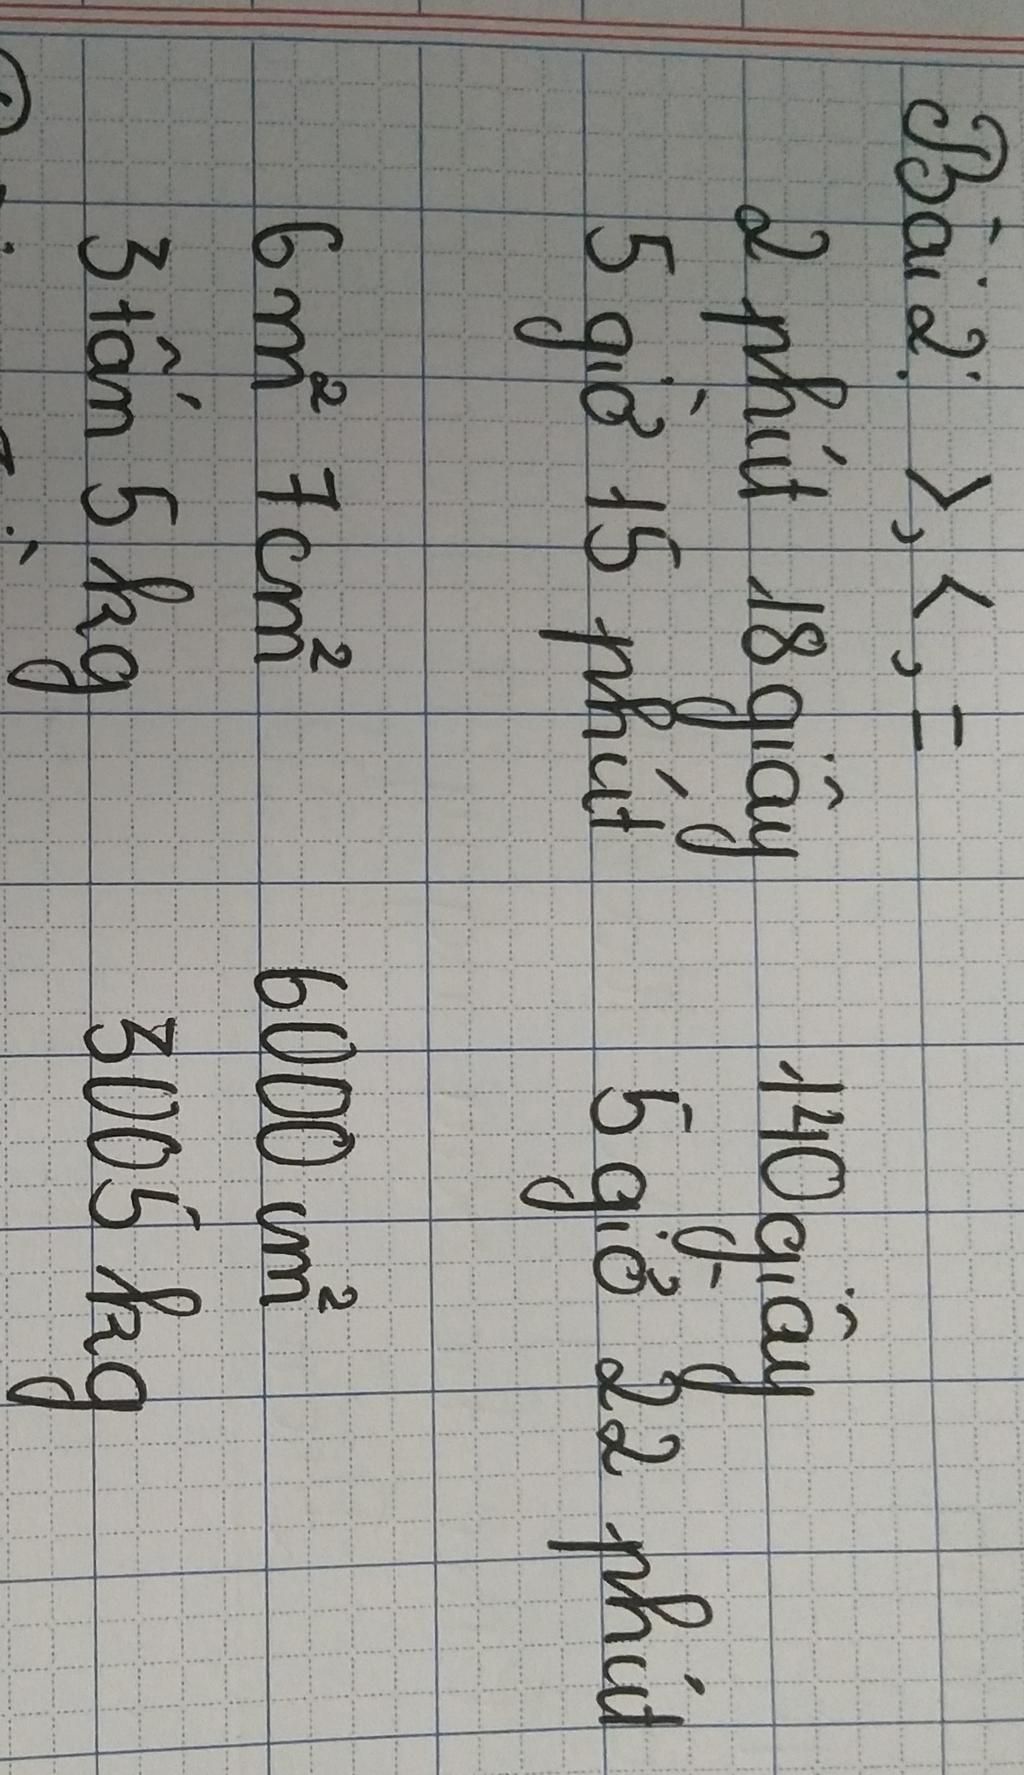 Bài 2: >, <, =
2 phút 18 giây 140 giây
5 giờ 15 phút 5 giờ 22 phút
6 m² 7 cm² 6000 cm²
3 tấn 5 kg 3005 kg